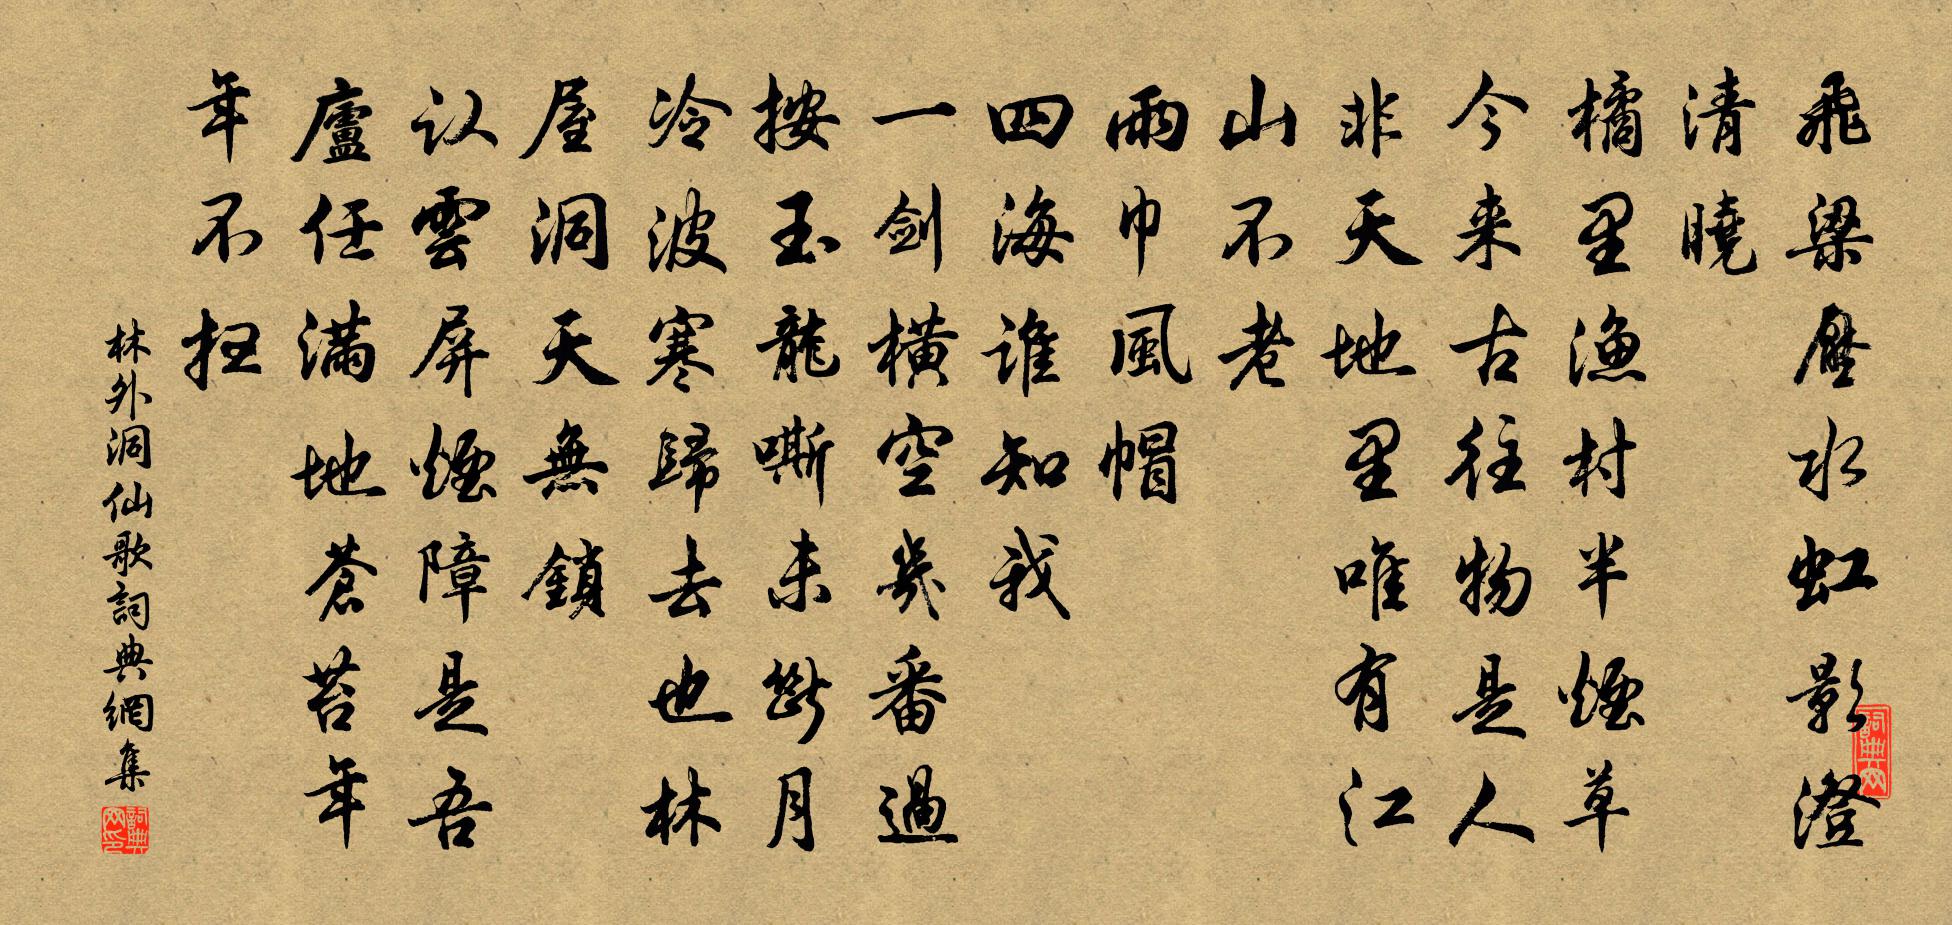 飛梁壓水虹影澄
清曉
橘里漁村半煙草
今来古往物是人
非天地里唯有江
山不老
雨巾風帽
四海谁知我
一剑横空幾番過
按玉龍嘶未斷月
冷波寒歸去也林
屋洞天無鎖
认雲屏煙障是吾
廬任满地蒼苔年
年不扫
林外洞仙歌詞典網集
詞典网
詞典网印